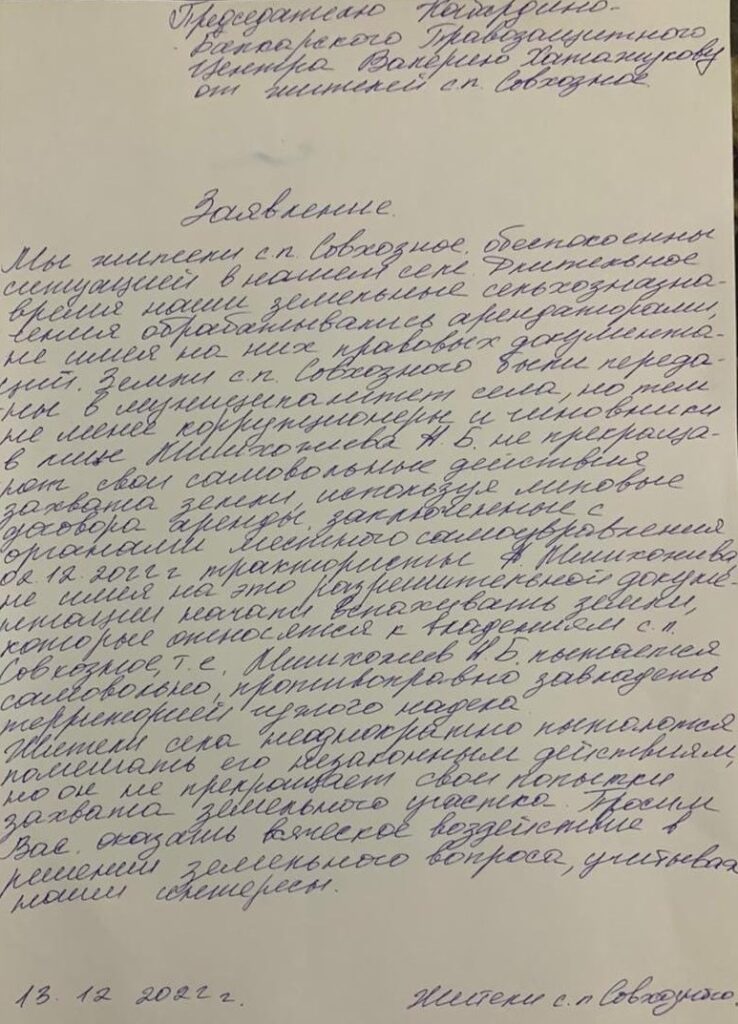 Председателю Кабардино-
Балкарского Правозащитного
Центра Валерию Хатажукову
от жителей с.п. Совхозное.
Заявление.
Мы жители с.п. Совхозное, обеспокоенны
ситуацией в нашем селе. Длительное
время наши земельные сельхозназна-
чения обрабатывались арендаторами,
не имея на них правовых документа-
ций. Земли с.п. Совхозного были переда-
ны в муниципалитет села, но тем
не менее коррупционеры и чиновники
в лице Шихожиева А.Б. не прекраща-
ют свои самовольные действия
захвата земли, используя липовые
договора аренды, заключенные с
органами местного самоуправления
02.12.2022 г трактористы А. Шихожива,
не имея на это разрешительной докуме-
нтации начали вспахивать земли,
которые относятся к владениям с.п.
Совхозное, т.е. Шихожиев А.Б. пытается
самовольно, противоправно завладеть
территорией чужого надела.
Жители села неоднократно пытаются
помешать его незаконным действиям,
но он не прекращает свои попытки
захвата земельного участка. Просим
Вас оказать всяческое воздействие в
решении земельного вопроса, учитывая
наши интересы.
13.12 2022 г. Жители с.п Совхозного.